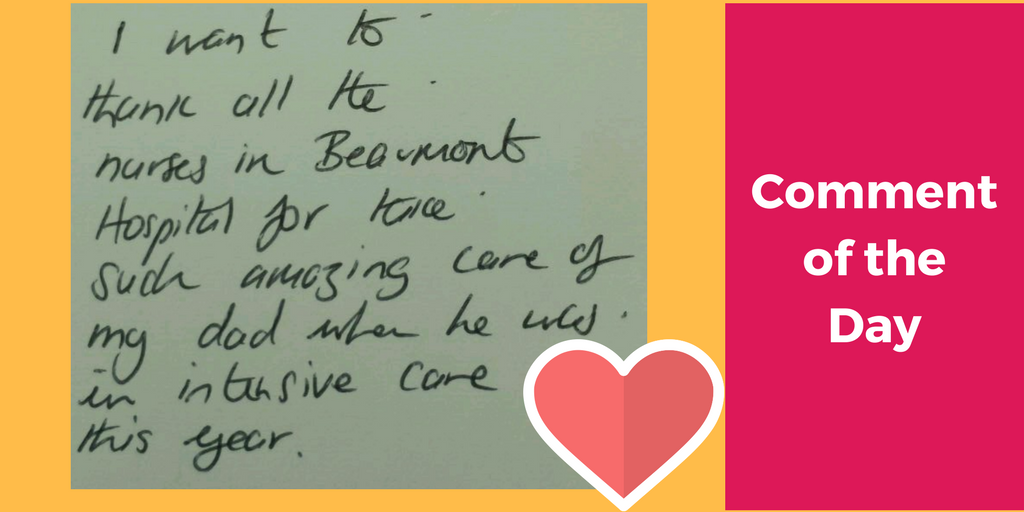 I want to
thank all the
nurses in Beaumont
Hospital for
such amazing care of
my dad when he was
in intensive care
this year.
Comment
of the
Day